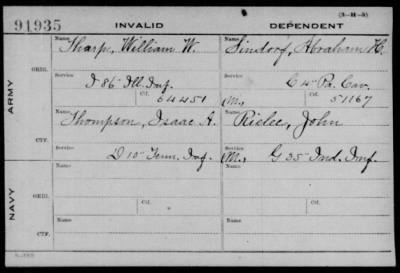 (3-H-5)
91935 INVALID DEPENDENT
Name Sharp, William W. Name Sindorf, Abraham H.
ARMY
ORIG.
Service Service
D 86" Ill. Inf. C 4" Pa. Cav.
Ctf. 64451 (M.) Ctf. 51167
Name Thompson, Isaac A. Name Rislee, John
CTF.
Service Service
D 10" Tenn. Inf. (M.) G 35" Ind. Inf.
Name Ctf. Name Ctf.
NAVY
ORIG.
Service Service
Name Name
CTF.
Service Service